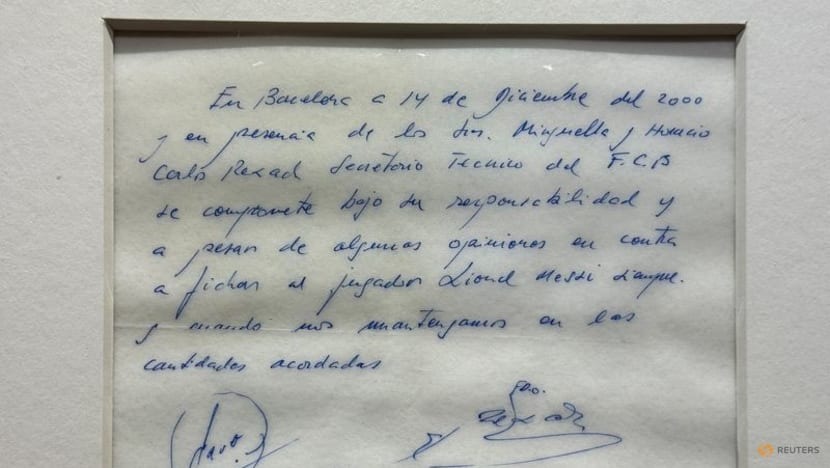 En Barcelona a 14 de Diciembre del 2000
y en presencia de los Srs. Minguella y Horacio
Carlos Rexach Secretario Tecnico del F.C.B
se compromete bajo su responsabilidad y
a pesar de algunas opiniones en contra
a fichar al jugador Lionel Messi siempre
y cuando nos mantengamos en las
cantidades acordadas
FDO.
REUTERS